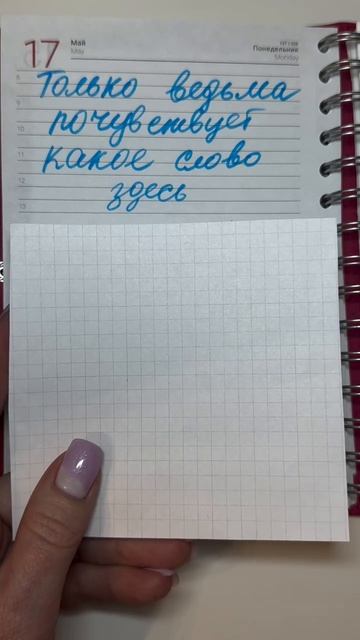 17 Май Понедельник
May Monday
Только ведьма
почувствует
какое слово
здесь
8
9
10
11
12
13